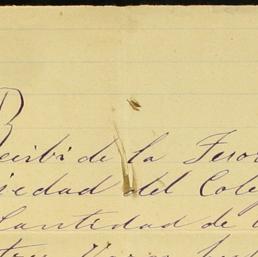 Recibi de la Tesor
iedad del Cole
Cantidad de
tres